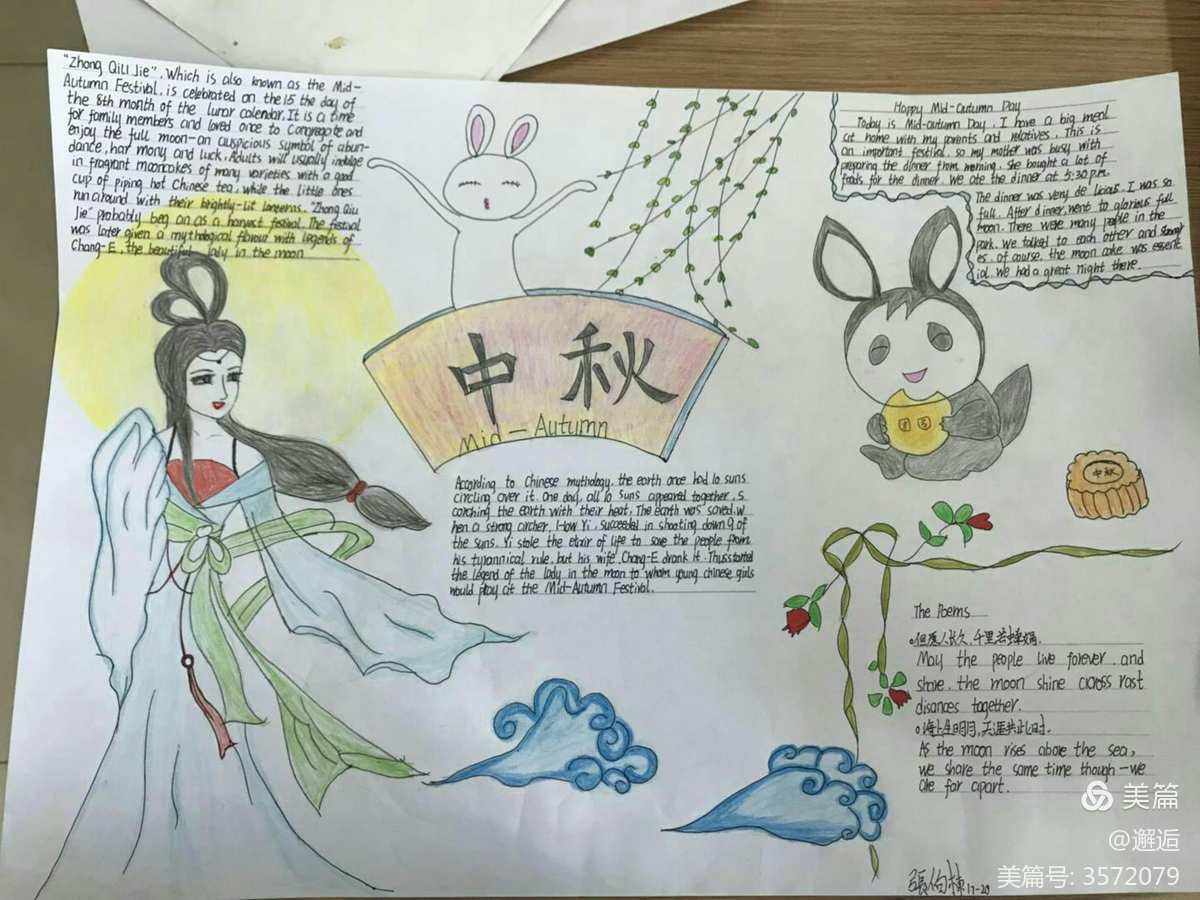 "Zhong Qiu Jie". Which is also known as the Mid-
Autumn Festival, is celebrated on the 15 the day of
the 8th month of the lunar calendar. It is a time
for family members and loved once to Congregate and
enjoy the full moon-an auspicious symbol of abun-
dance, har mony and luck. Adults will usually indulge
in fragrant mooncakes of many varieties with a good
cup of piping hot Chinese tea, while the little ones
run around with their brightly-lit lanterns. "Zhong Qiu
Jie" probably beg an as a harvest festival. The festival
was later given a mythological flavour with legends of
Chang-E, the beautiful lady in the moon
中秋
Mid-Autumn
According to Chinese mythology, the earth once had 10 suns
circling over it. One day, all 10 suns appeared together, s
corching the earth with their heat. The earth was saved. w
hen a strong archer, Hou Yi, succeeded in shooting down 9 of
the suns. Yi stole the elixir of life to save the people from
his tyrannical rule, but his wife, Chang-E drank it. Thus started
the legend of the lady in the moon to whom young chinese girls
would pray at the Mid-Autumn Festival.
Happy Mid-autumn Day
Today is Mid-autumn Day. I have a big meal
at home with my parents and relatives. This is
an important festival, so my mother was busy with
preparing the dinner from morning. She bought a lot of
foods for the dinner. We ate the dinner at 5:30 p.m.
The dinner was very de licious. I was so
full. After dinner, went to glorious full
moon. There were many people in the
park. We talked to each other and
es, of course, the moon cake was essent
ial. We had a great night there.
中秋
The Poems
但愿人长久,千里共婵娟.
May the people live forever, and
share, the moon shine across rast
disances together.
海上生明月,天涯共此时.
As the moon rises above the sea,
we share the same time though-we
are far apart.
張伯棟 17-20
美篇
@邂逅
美篇号: 3572079